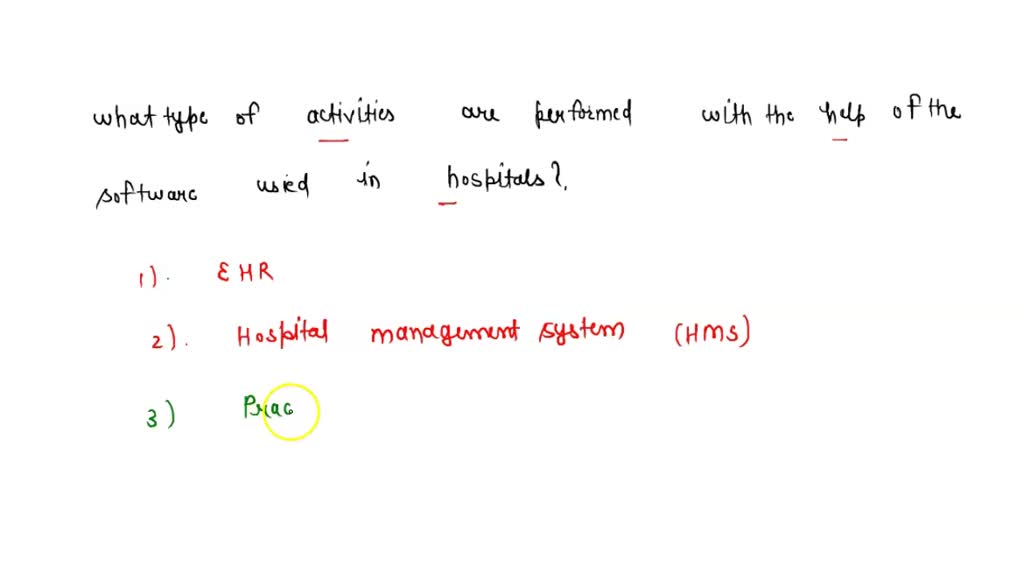 what type of activities are performed with the help of the
software used in hospitals?.
1). EHR
2). Hospital management system (HMS)
3) Prac